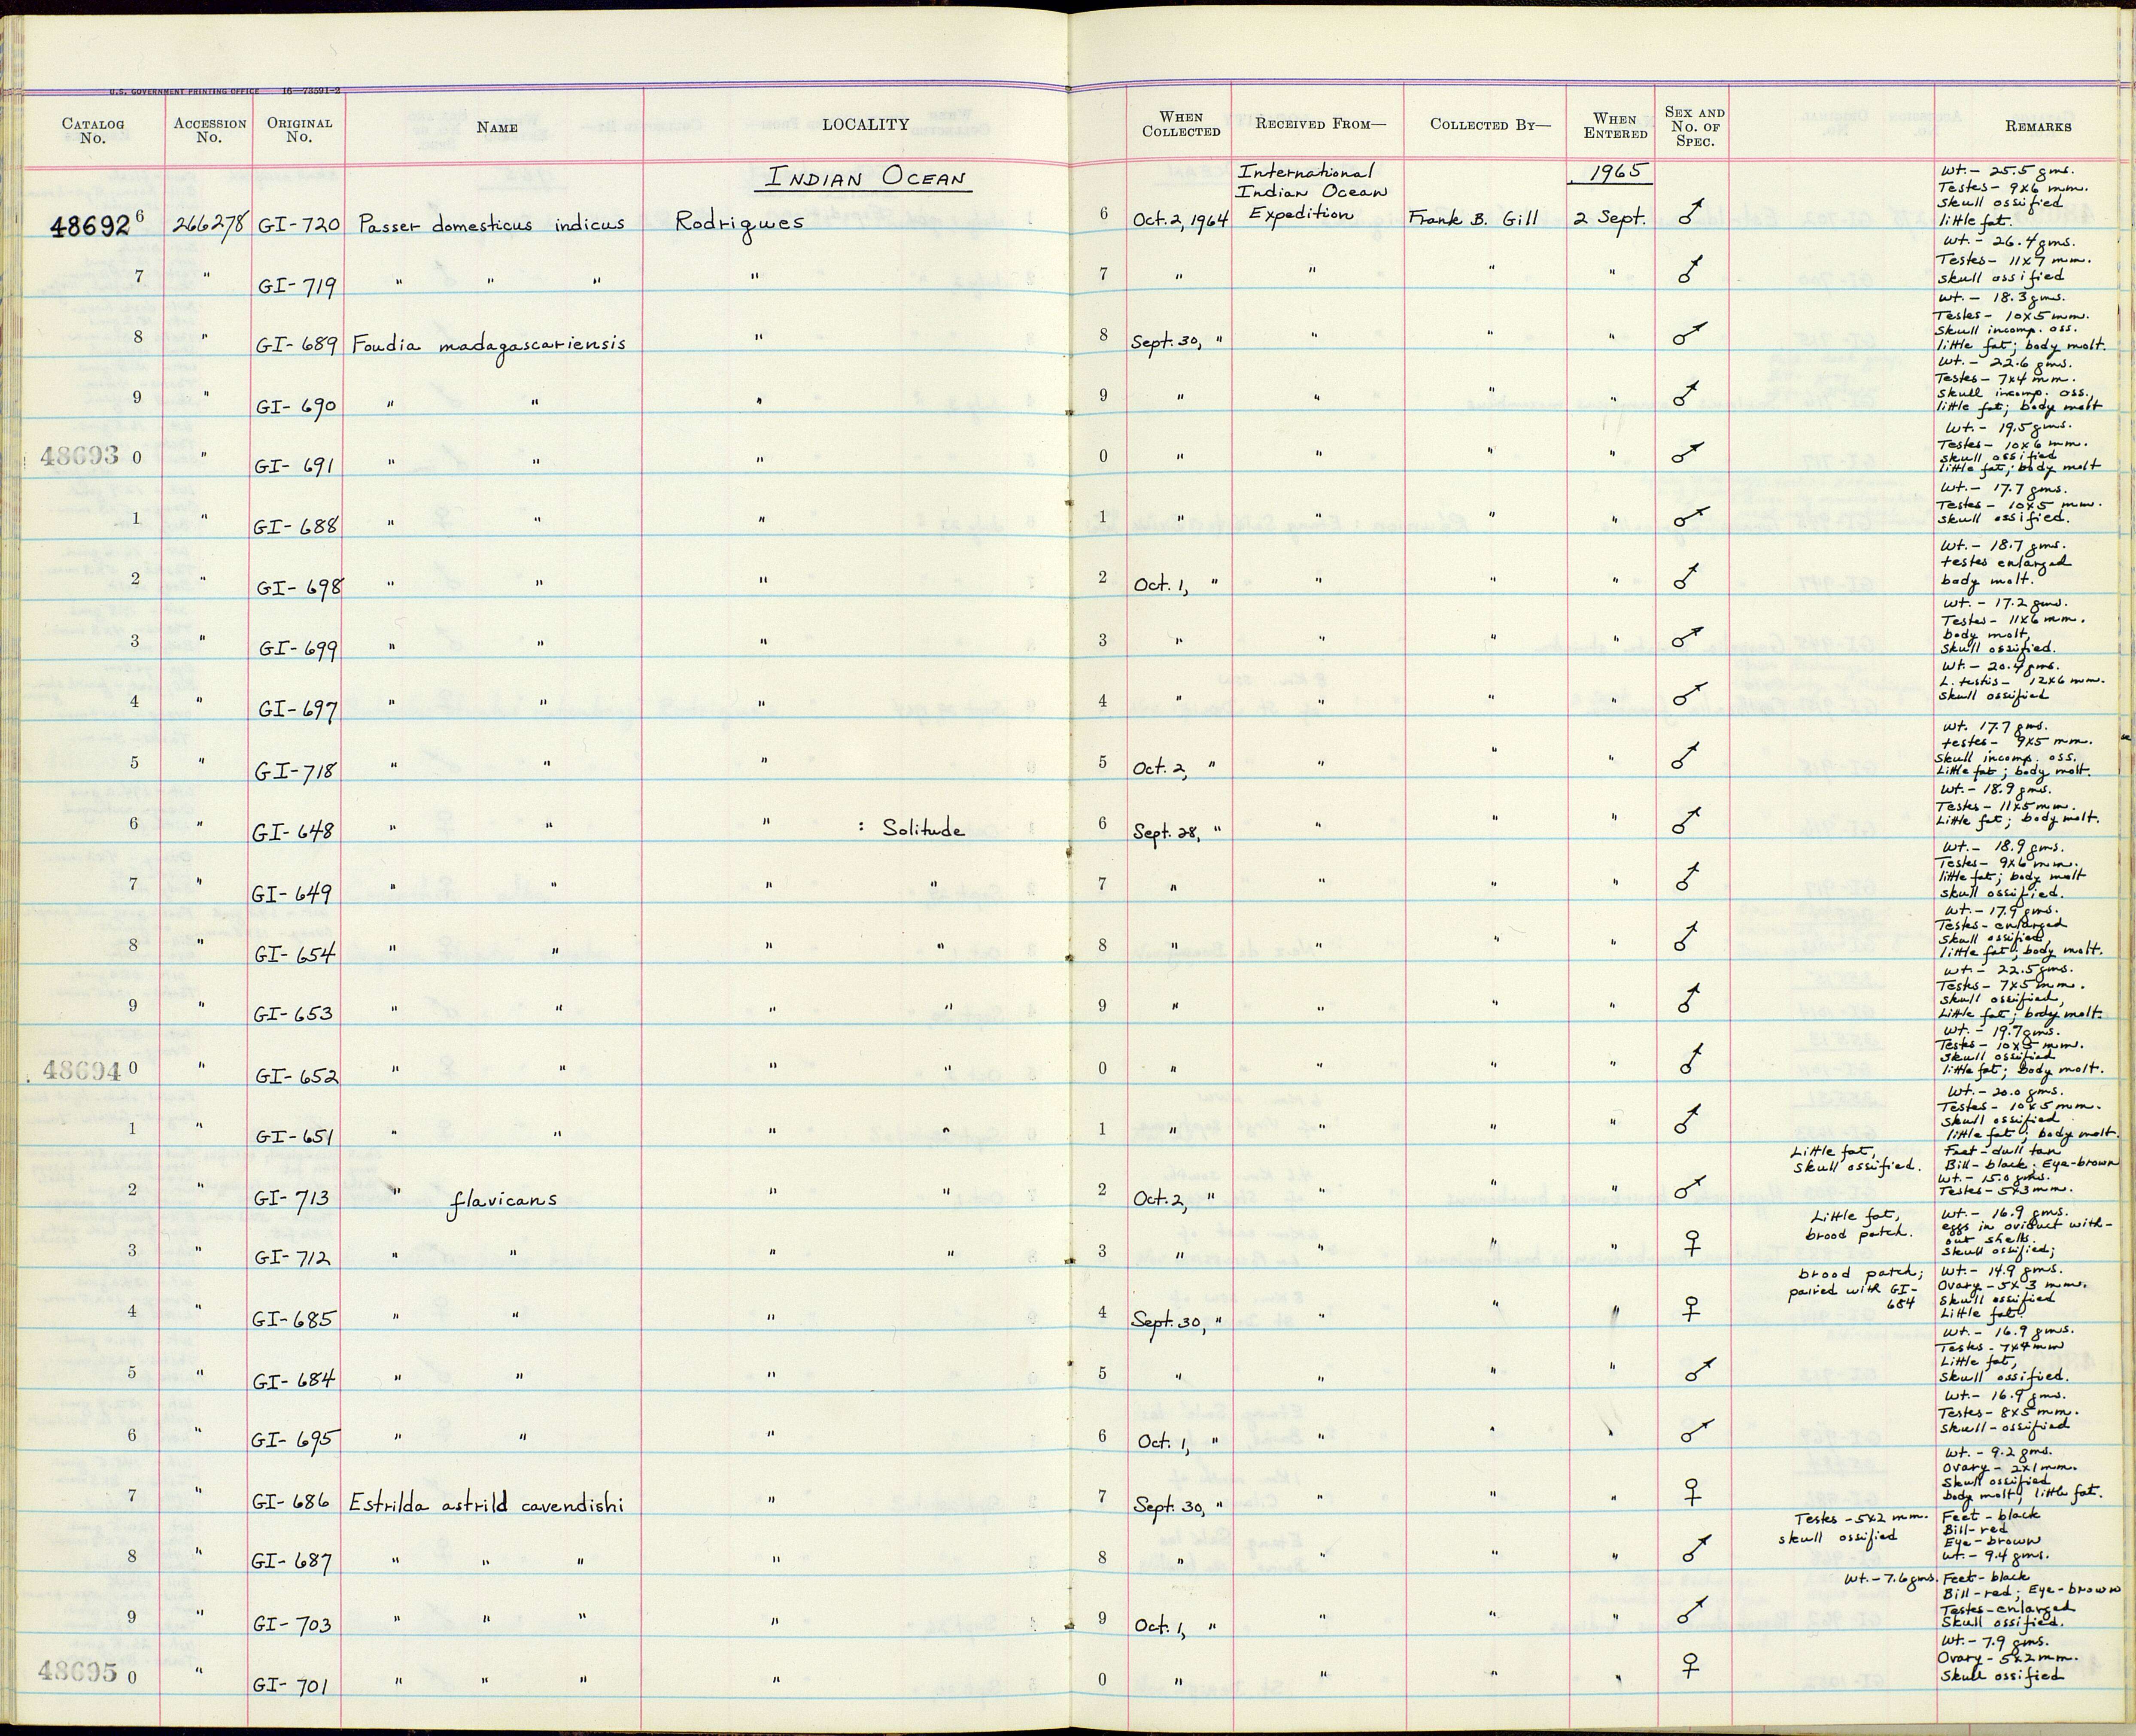 U.S. GOVERNMENT PRINTING OFFICE 16—73591-2
CATALOG No. ACCESSION No. ORIGINAL No. NAME LOCALITY WHEN COLLECTED RECEIVED FROM— COLLECTED BY— WHEN ENTERED SEX AND No. OF SPEC. REMARKS
INDIAN OCEAN International Indian Ocean Expedition 1965
48692 6 266278 GI-720 Passer domesticus indicus Rodrigues 6 Oct. 2, 1964 Frank B. Gill 2 Sept. ♂ Wt.- 25.5 gms. Testes- 9x6 mm. Skull ossified little fat.
7 " GI-719 " " " " 7 " " " " ♂ Wt.- 26.4 gms. Testes- 11x7 mm. Skull ossified
8 " GI-689 Foudia madagascariensis " 8 Sept. 30, " " " " ♂ Wt.- 18.3 gms. Testes- 10x5 mm. Skull incomp. oss. little fat; body molt.
9 " GI-690 " " " 9 " " " " ♂ Wt.- 22.6 gms. Testes- 7x4 mm. Skull incomp. oss., little fat; body molt
48693 0 " GI-691 " " " 0 " " " " ♂ Wt.- 19.5 gms. Testes- 10x6 mm. Skull ossified little fat; body molt
1 " GI-688 " " " 1 " " " " ♂ Wt.- 17.7 gms. Testes- 10x5 mm. Skull ossified.
2 " GI-698 " " " 2 Oct. 1, " " " " ♂ Wt.- 18.7 gms. testes enlarged body molt.
3 " GI-699 " " " 3 " " " " ♂ Wt.- 17.2 gms. Testes- 11x6 mm. body molt, Skull ossified.
4 " GI-697 " " " 4 " " " " ♂ Wt.- 20.4 gms. L. testis- 12x6 mm. Skull ossified
5 " GI-718 " " " 5 Oct. 2, " " " " ♂ Wt. 17.7 gms. testes- 9x5 mm. Skull incomp. oss. Little fat; body molt.
6 " GI-648 " " " : Solitude 6 Sept. 28, " " " " ♂ Wt.- 18.9 gms. Testes- 11x5 mm. Little fat; body molt.
7 " GI-649 " " " " 7 " " " " ♂ Wt.- 18.9 gms. Testes- 9x6 mm. little fat; body molt Skull ossified.
8 " GI-654 " " " " 8 " " " " ♂ Wt.- 17.9 gms. Testes- enlarged Skull ossified little fat; body molt.
9 " GI-653 " " " " 9 " " " " ♂ Wt.- 22.5 gms. Testes- 7x5 mm. Skull ossified, Little fat; body molt.
48694 0 " GI-652 " " " " 0 " " " " ♂ Wt.- 19.7 gms. Testes- 10x5 mm. Skull ossified little fat; body molt.
1 " GI-651 " " " " 1 " " " " ♂ Wt.- 20.0 gms. Testes- 10x5 mm. Skull ossified little fat; body molt.
2 " GI-713 " flavicans " " 2 Oct. 2, " " " " ♂ Little fat, skull ossified. Feet- dull tan Bill- black; Eye-brown Wt.- 15.0 gms. Testes- 5x3 mm.
3 " GI-712 " " " " 3 " " " " ♀ Little fat, brood patch. Wt.- 16.9 gms. eggs in oviduct without shells. Skull ossified;
4 " GI-685 " " " 4 Sept. 30, " " " " ♀ brood patch; paired with GI-684 Wt.- 14.9 gms. Ovary- 5x3 mm. Skull ossified Little fat.
5 " GI-684 " " " 5 " " " " ♂ Wt.- 16.9 gms. Testes- 7x4 mm Little fat, Skull ossified.
6 " GI-695 " " " 6 Oct. 1, " " " " ♂ Wt.- 16.9 gms. Testes- 8x5 mm. Skull-ossified
7 " GI-686 Estrilda astrild cavendishi " 7 Sept. 30, " " " " ♀ Wt.- 9.2 gms. Ovary- 2x1 mm. Skull ossified body molt, little fat.
8 " GI-687 " " " " 8 " " " " ♂ Testes- 5x2 mm. skull ossified Feet- black Bill- red Eye- brown Wt.- 9.4 gms.
9 " GI-703 " " " " 9 Oct. 1, " " " " ♂ Wt.- 7.6 gms. Feet- black Bill- red; Eye- brown Testes- enlarged Skull ossified.
48695 0 " GI-701 " " " " 0 " " " " ♀ Wt.- 7.9 gms. Ovary- 5x2 mm. Skull ossified